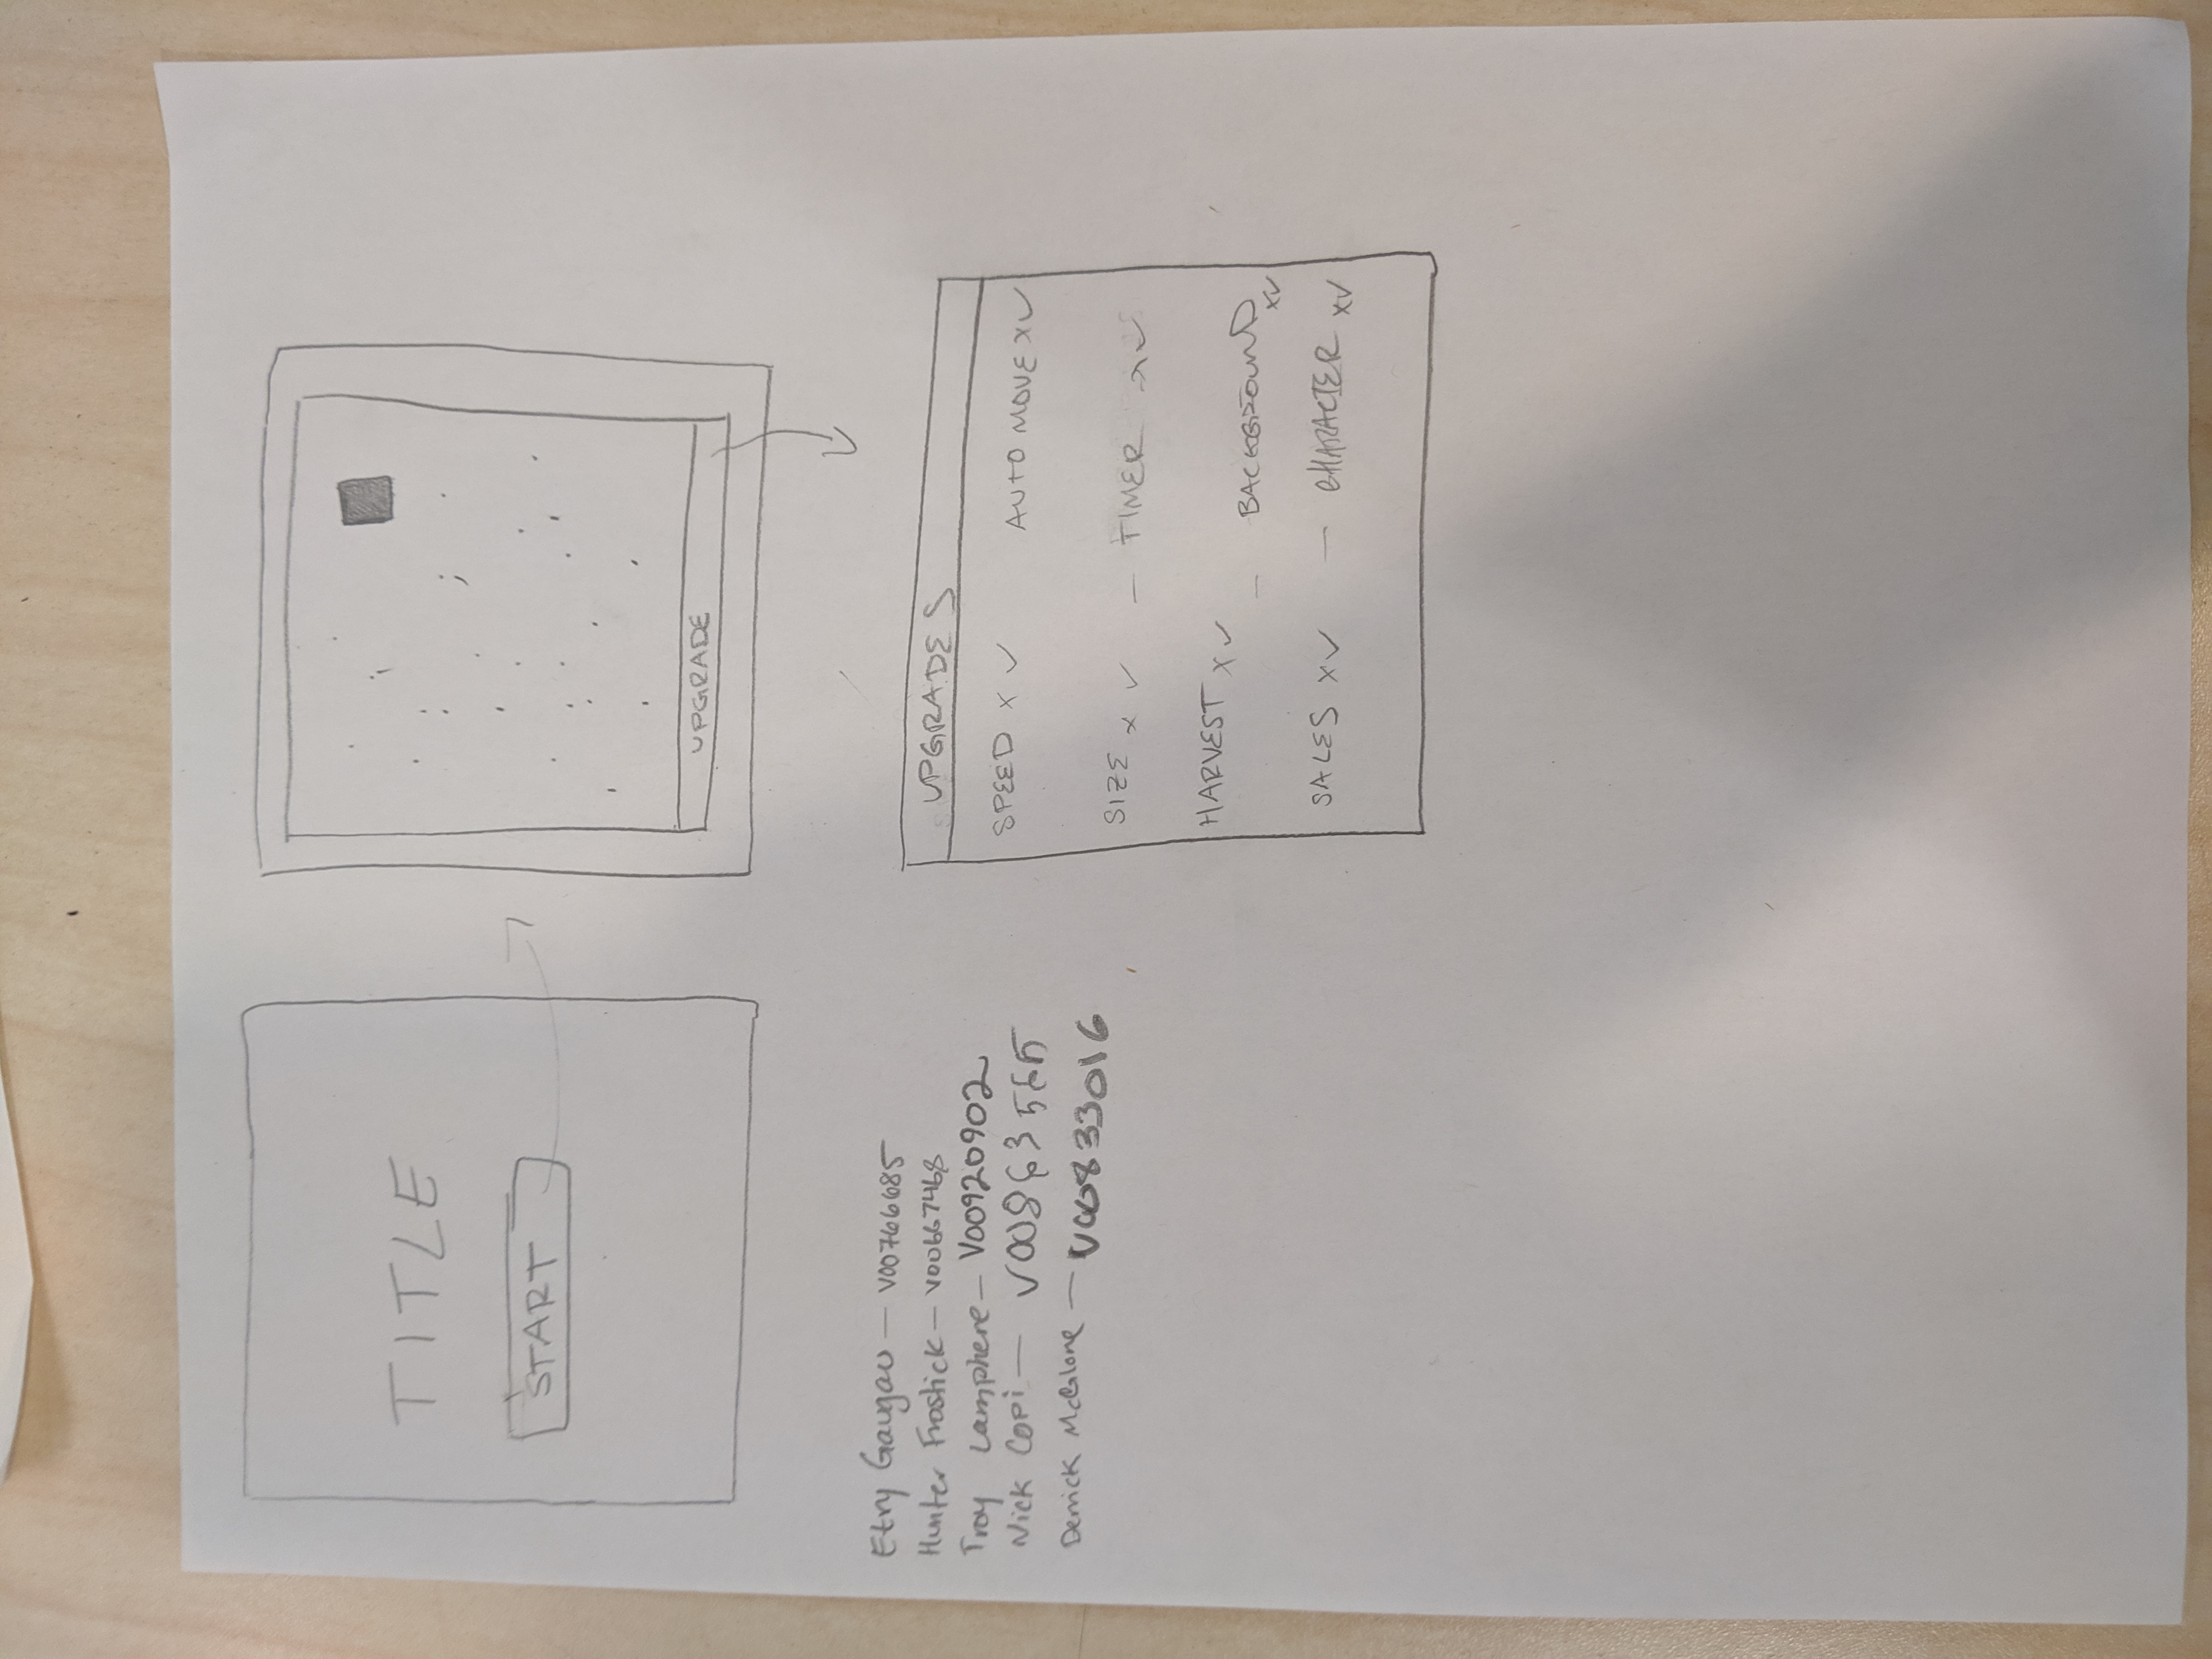 TITLE
START
UPGRADE
Etry Gaugau — V00766685
Hunter Frostick — V00667468
Troy Lamphere — V00920902
Nick Copi —
Derrick McGlone — V00833016
UPGRADES
SPEED x ✓ AUTO MOVE x ✓
SIZE x ✓ — TIMER x ✓
HARVEST x ✓
— BACKGROUND x ✓
SALES x ✓ — CHARACTER x ✓